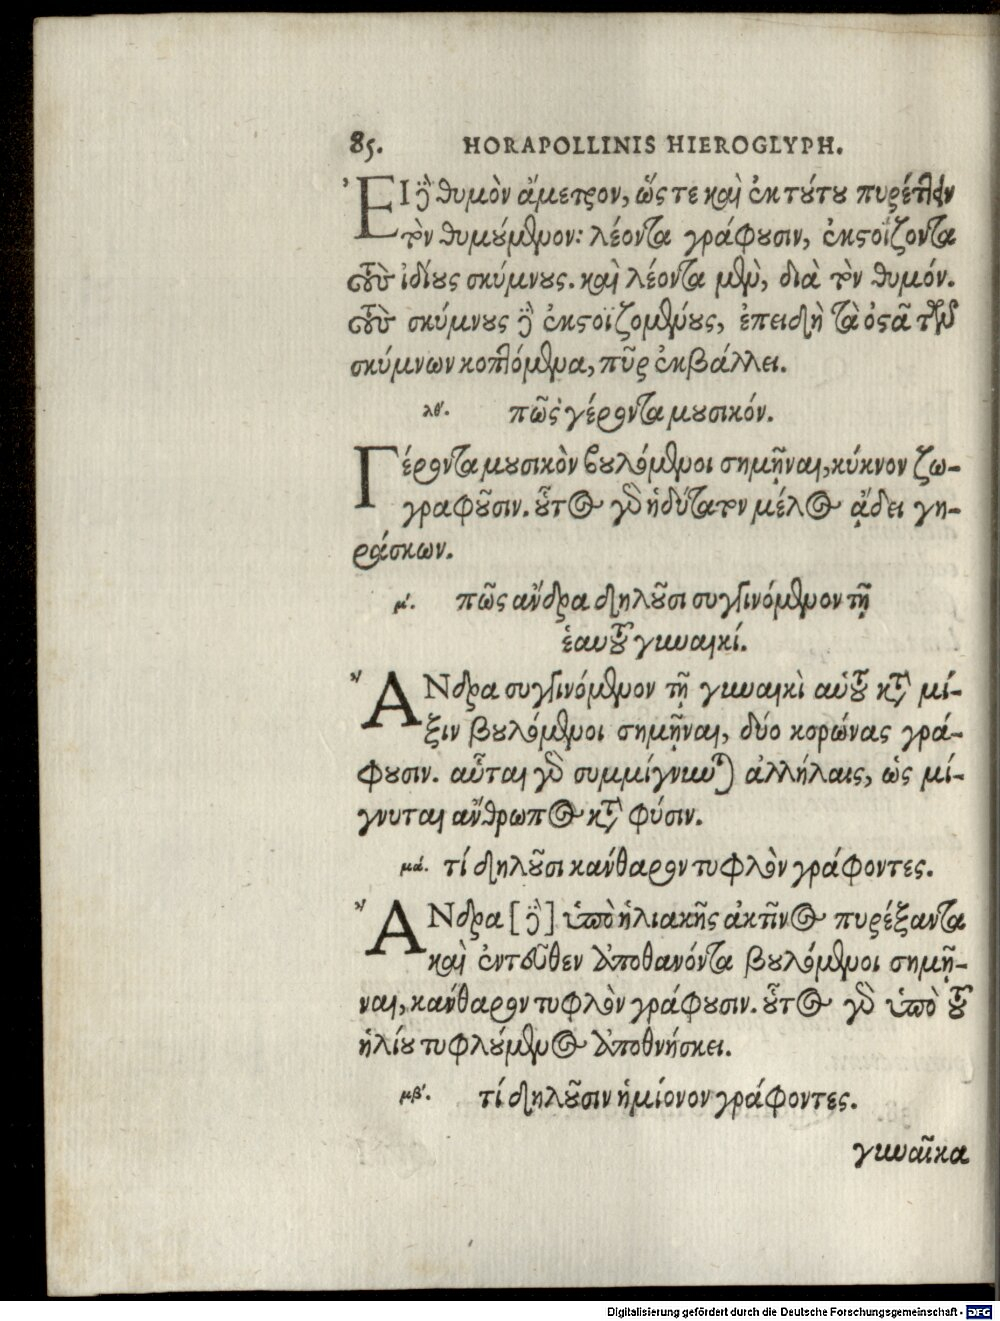 85. HORAPOLLINIS HIEROGLYPH.
ἘΙ δὲ θυμὸν ἄμετρον, ὥς τε καὶ ἐκ τούτου πυρέττειν
τὸν θυμούμενον: λέοντα γράφουσιν, ἐκστοΐζοντα
τοὺς ἰδίους σκύμνους. καὶ λέοντα μὲν, διὰ τὸν θυμόν.
τοὺς σκύμνους δὲ ἐκστοϊζομένους, ἐπειδὴ τὰ ὀστᾶ τῶν
σκύμνων κοπτόμενα, πῦρ ἐκβάλλει.
λθʹ. πῶς γέροντα μουσικόν.
Γέροντα μουσικὸν βουλόμενοι σημῆναι, κύκνον ζω-
γραφοῦσιν. οὗτος γὰρ ἡδύτατον μέλος ᾄδει γη-
ράσκων.
μʹ. πῶς ἄνδρα δηλοῦσι συγγινόμενον τῇ
ἑαυτοῦ γυναικί.
ἌΝδρα συγγινόμενον τῇ γυναικὶ αὐτοῦ κατὰ μί-
ξιν βουλόμενοι σημῆναι, δύο κορώνας γρά-
φουσιν. αὗται γὰρ συμμίγνυνται ἀλλήλαις, ὡς μί-
γνυται ἄνθρωπος κατὰ φύσιν.
μά. τί δηλοῦσι κάνθαρον τυφλὸν γράφοντες.
ἌΝδρα [δὲ] ὑπὸ ἡλιακῆς ἀκτῖνος πυρέξαντα
καὶ ἐντεῦθεν ἀποθανόντα βουλόμενοι σημῆ-
ναι, κάνθαρον τυφλὸν γράφουσιν. οὗτος γὰρ ὑπὸ τοῦ
ἡλίου τυφλούμενος ἀποθνήσκει.
μβʹ. τί δηλοῦσιν ἡμίονον γράφοντες.
γυναῖκα
Digitalisierung gefördert durch die Deutsche Forschungsgemeinschaft - DFG